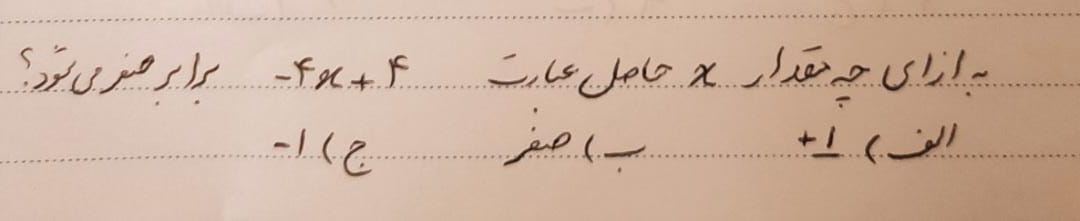 به ازای چه مقدار x حاصل عبارت -۴x+۴ برابر صفر می شود؟
الف) +۱ ب) صفر ج) -۱